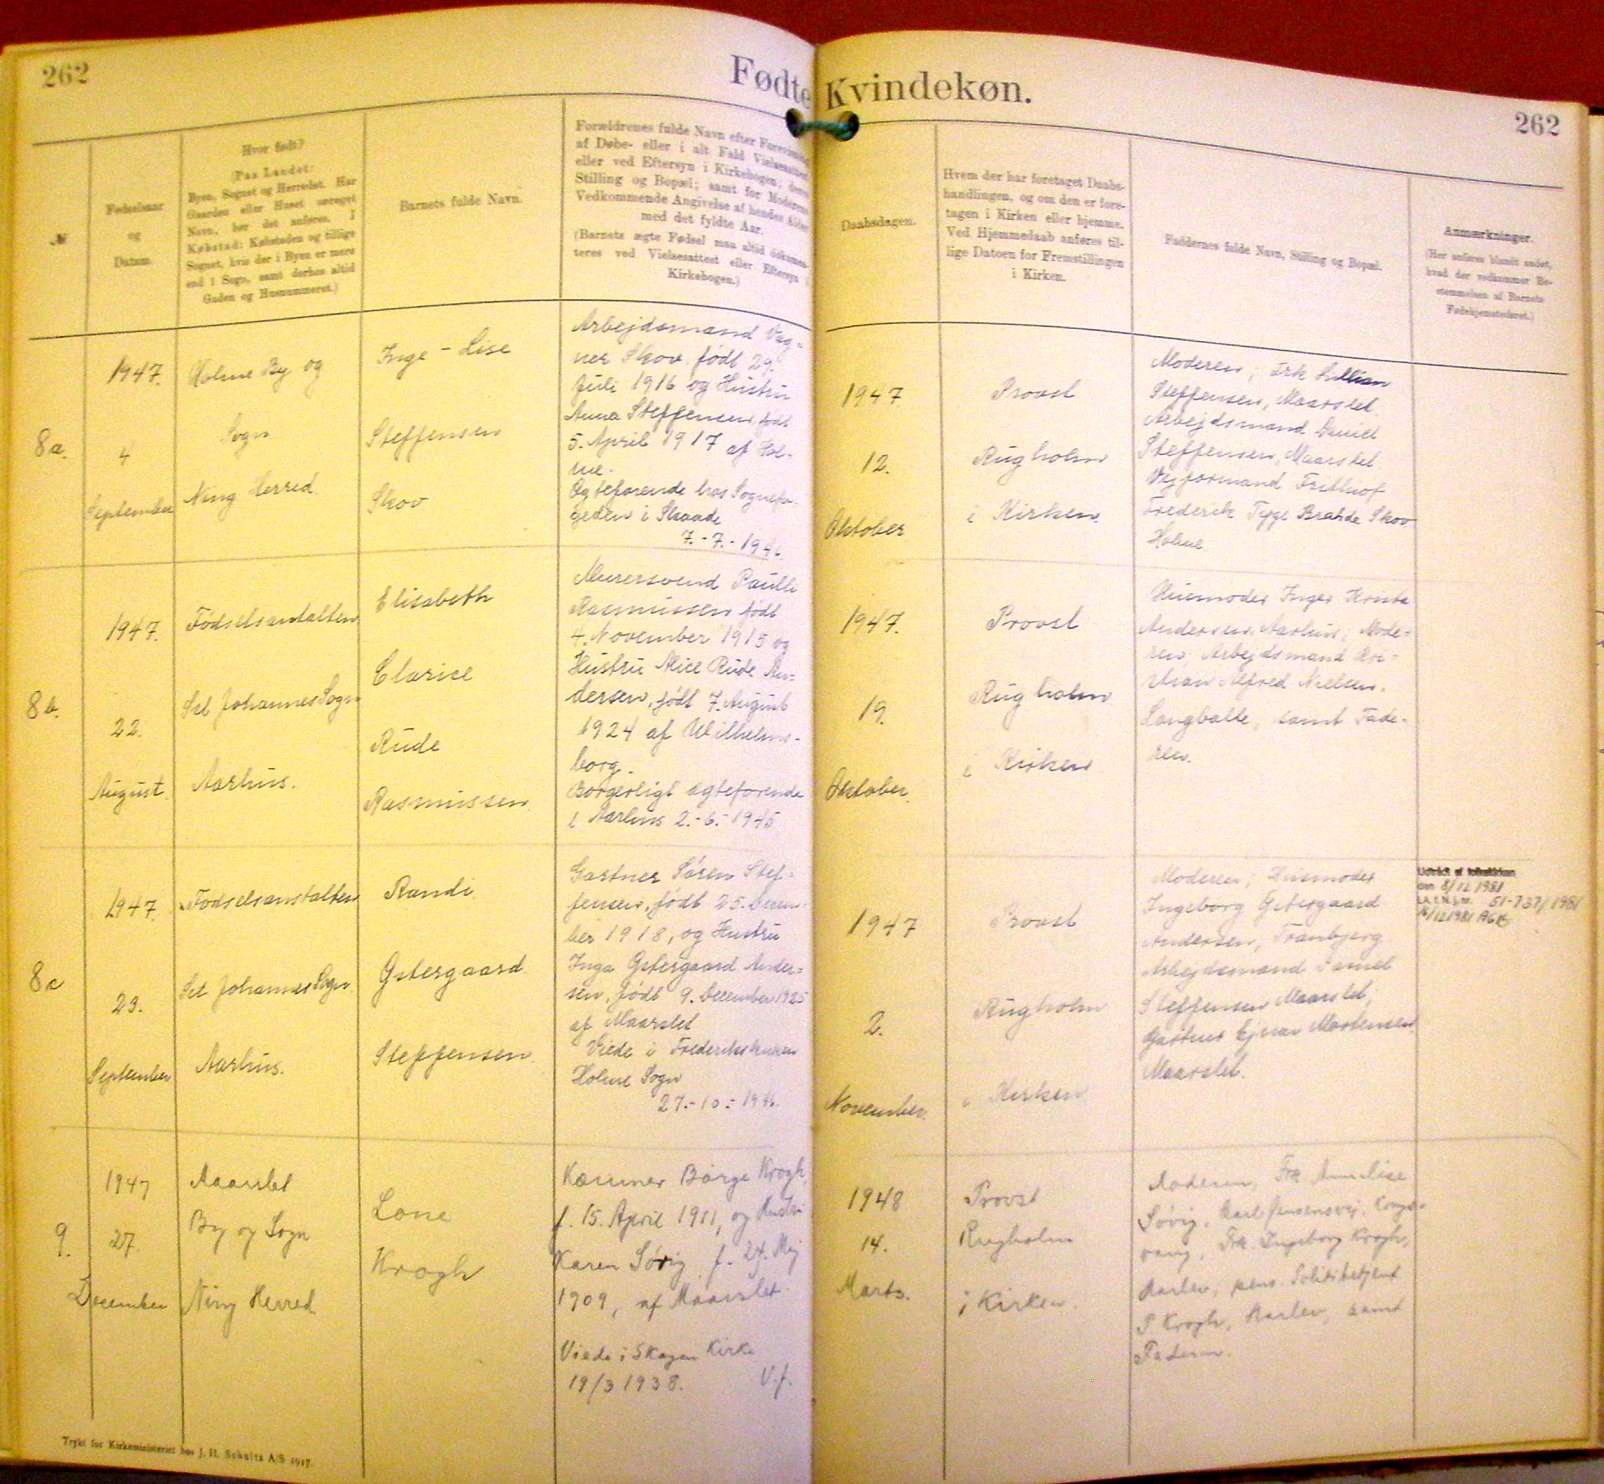 262
Fødte Kvindekøn.
262
№
Fødselsaar
og
Datum.
Hvor født?
(Paa Landet:
Byen, Sognet og Herredet. Har
Gaarden eller Huset særeget
Navn, bør det anføres. I
Købstad: Købstaden og tillige
Sognet, hvis der i Byen er mere
end 1 Sogn, samt derhos altid
Gaden og Husnummeret.)
Barnets fulde Navn.
Forældrenes fulde Navn efter
af Døbe- eller i alt Fald
eller ved Eftersyn i Kirkebogen;
Stilling og Bopæl; samt for Moderens
Vedkommende Angivelse af hendes Alder
med det fyldte Aar.
(Barnets ægte Fødsel maa altid
teres ved Vielsesattest eller Eftersyn i
Kirkebogen.)
Daabsdagen.
Hvem der har foretaget Daabs-
handlingen, og om den er fore-
tagen i Kirken eller hjemme.
Ved Hjemmedaab anføres til-
lige Datoen for Fremstillingen
i Kirken.
Faddernes fulde Navn, Stilling og Bopæl.
Anmærkninger.
(Her anføres blandt andet,
hvad der vedkommer Be-
stemmelsen af Barnets
Fødehjemstedsret.)
8a.
1947.
4
September
Holme By og
Sogn
Ning Herred
Inge-Lise
Steffensen
Skov
Arbejdsmand Vag-
ner Skov, født 29.
Juli 1916 og Hustru
Anna Steffensen født
5. April 1917 af Hol-
me.
Ægteforende hos Sognefo-
geden i Skaade
7.-7.-1946
1947
12.
Oktober
Provst
Rugholm
i Kirken.
Moderen; Frk Lillian
Steffensen, Maarslet.
Arbejdsmand Daniel
Steffensen, Maarslet
Vejformand Frithiof
Frederik Tyge Brahde Skov
Holme
8b.
1947.
22.
August.
Fødselsanstalten
Sct Johannes Sogn
Aarhus.
Elisabeth
Clarice
Rude
Rasmussen.
Murersvend Paulli
Rasmussen født
4. November 1915 og
Hustru Alice Rude An-
dersen, født 7. August
1924 af Wilhelms-
borg.
Borgerligt ægteforende
i Aarhus 2.-6.-1945
1947.
19.
Oktober.
Provst
Rugholm
i Kirken
Husmoder Inger
Andersen, Aarhus; Mode-
ren Arbejdsmand
Alfred Nielsen.
Langballe, samt Fade-
ren.
8c
1947.
23.
September
Fødselsanstalten
Sct Johannes Sogn
Aarhus.
Randi
Østergaard
Steffensen.
Gartner Søren Stef-
fensen, født 25. Decem-
ber 1918, og Hustru
Inga Østergaard Ander-
sen, født 9. December 1925
af Maarslet
Viede i Frederikskirken
Holme Sogn
27.-10.-1946.
1947
2.
November.
Provst
Rugholm
i Kirken
Moderen; Husmoder
Ingeborg Østergaard
Andersen, Tranbjerg
Arbejdsmand Daniel
Steffensen Maarslet,
Gartner Ejnar Mortensen
Maarslet.
Udtrådt af folkekirken
den 8/12 1981
51-737/1981
9.
1947
27
December
Maarslet
By og Sogn
Ning Herred
Lone
Krogh
Kæmner Børge Krogh,
f. 15. April 1911, og Hustru
Karen Sørig f. 24. Maj
1909, af Maarslet.
Viede i Skagen Kirke
19/3 1938. V.f.
1948
14.
Marts.
Provst
Rugholm
i Kirken.
Moderen, Frk Anne Lise
Sørig,
Frk. Ingeborg Krogh,
Harlev; pens. Politibetjent
P Krogh, Harlev, samt
Faderen.
Trykt for Kirkeministeriet hos J. H. Schultz A/S 1917.